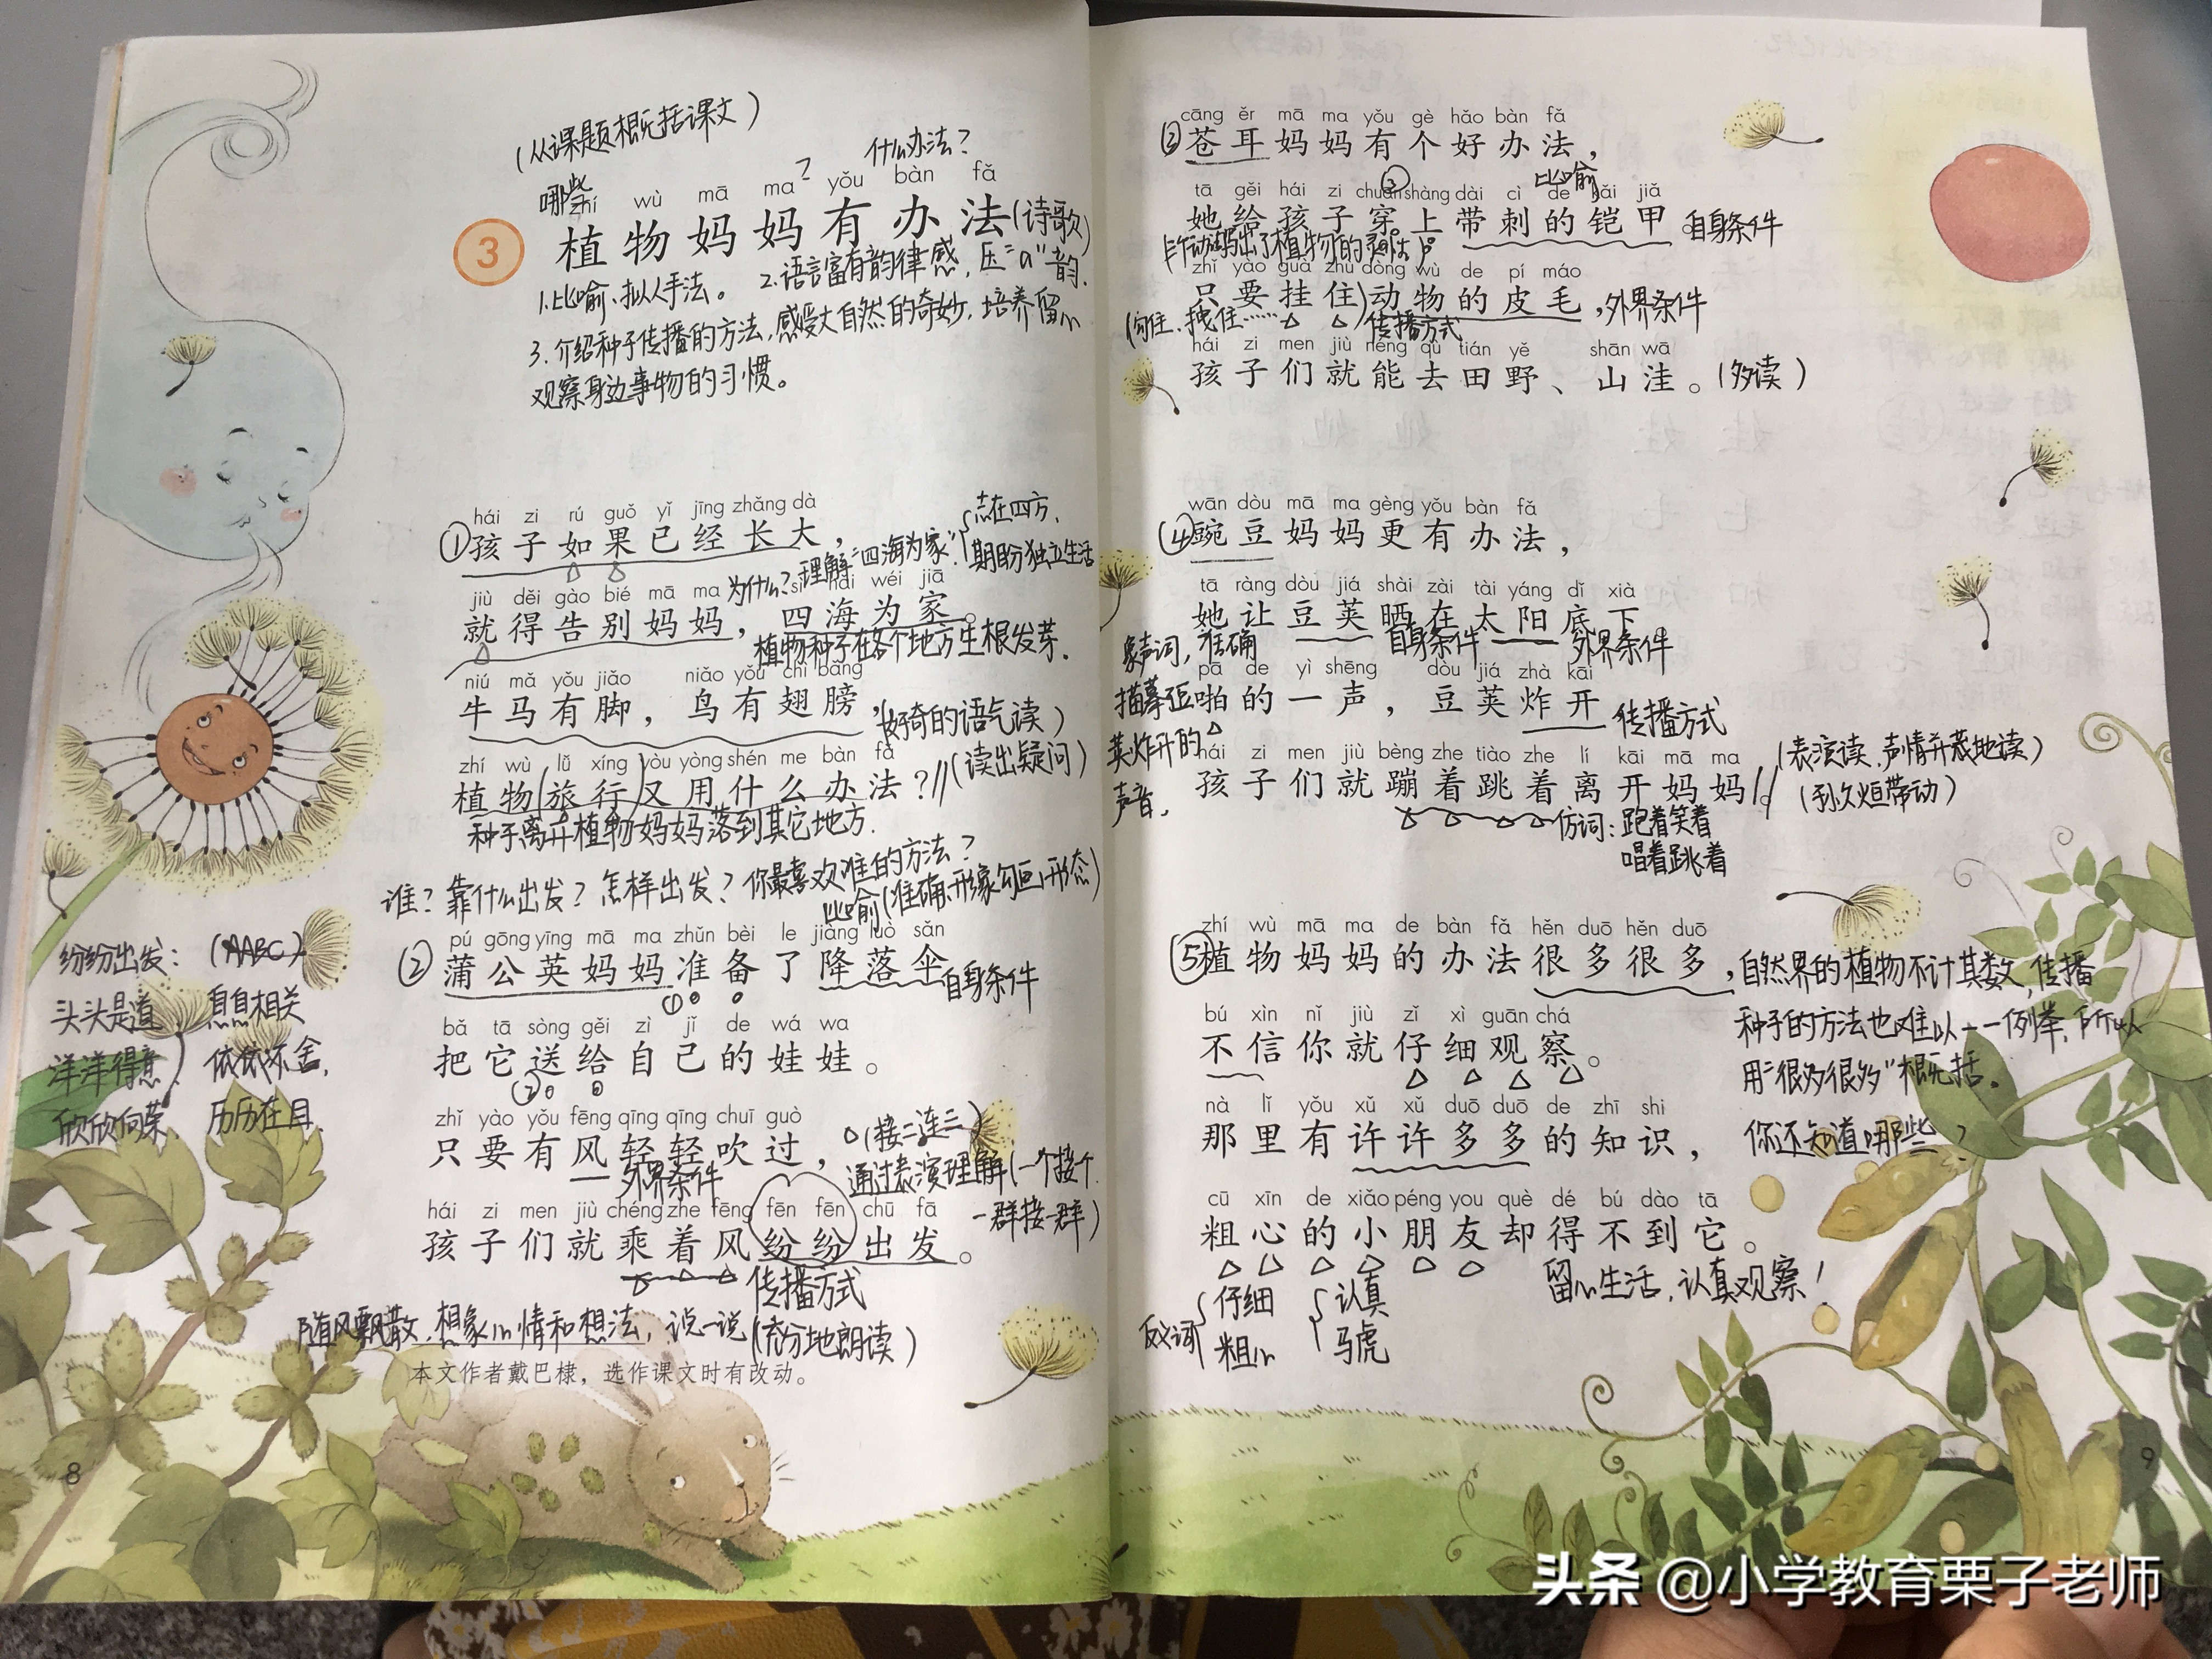 (从课题概括课文)
哪些 ? 什么办法?
zhí wù mā ma yǒu bàn fǎ
3 植物妈妈有办法(诗歌)
1.比喻、拟人手法。 2.语言富有韵律感,压“a”韵.
3.介绍种子传播的方法,感受大自然的奇妙,培养留心
观察身边事物的习惯。
hái zi rú guǒ yǐ jīng zhǎng dà
①孩子如果已经长大,
为什么?理解“四海为家”{志在四方、
期盼独立生活
jiù děi gào bié mā ma sì hǎi wéi jiā
就得告别妈妈,四海为家。
植物种子在各个地方生根发芽.
niú mǎ yǒu jiǎo niǎo yǒu chì bǎng
牛马有脚,鸟有翅膀,(好奇的语气读)
zhí wù lǚ xíng yòu yòng shén me bàn fǎ
植物(旅行)又用什么办法?//(读出疑问)
种子离开植物妈妈落到其它地方.
谁?靠什么出发?怎样出发?你最喜欢谁的方法?
比喻(准确、形象勾画形态)
pú gōng yīng mā ma zhǔn bèi le jiàng luò sǎn
②蒲公英妈妈准备了降落伞自身条件
①
bǎ tā sòng gěi zì jǐ de wá wa
把它送给自己的娃娃。
②
zhǐ yào yǒu fēng qīng qīng chuī guò
只要有风轻轻吹过,
外界条件
(接二连三)
通过表演理解(一个接一个
一群接一群)
hái zi men jiù chéng zhe fēng fēn fēn chū fā
孩子们就乘着风纷纷出发。
传播方式
随风飘散,想象心情和想法,说一说(充分地朗读)
本文作者戴巴棣,选作课文时有改动。
纷纷出发: (AABC)
头头是道 息息相关
洋洋得意 依依不舍
欣欣向荣 历历在目
8
cāng ěr mā ma yǒu gè hǎo bàn fǎ
③苍耳妈妈有个好办法,
② 比喻
tā gěi hái zi chuān shàng dài cì de kǎi jiǎ
她给孩子穿上带刺的铠甲。自身条件
zhǐ yào guà zhù dòng wù de pí máo
只要挂住)动物的皮毛,外界条件
(勾住、拽住…… 传播方式
hái zi men jiù néng qù tián yě shān wā
孩子们就能去田野、山洼。(多读)
wān dòu mā ma gèng yǒu bàn fǎ
④豌豆妈妈更有办法,
tā ràng dòu jiá shài zài tài yáng dǐ xià
她让豆荚晒在太阳底下,
自身条件 外界条件
象声词,准确
描摹豆
荚炸开的
声音.
pā de yì shēng dòu jiá zhà kāi
啪的一声,豆荚炸开传播方式
hái zi men jiù bèng zhe tiào zhe lí kāi mā ma
孩子们就蹦着跳着离开妈妈。//
(表演读、声情并茂地读)
仿词:跑着笑着
唱着跳着
zhí wù mā ma de bàn fǎ hěn duō hěn duō
⑤植物妈妈的办法很多很多,自然界的植物不计其数,传播
种子的方法也难以一一例举,所以
用“很多很多”概括。
bú xìn nǐ jiù zǐ xì guān chá
不信你就仔细观察。
nà lǐ yǒu xǔ xǔ duō duō de zhī shi
那里有许许多多的知识,
你还知道哪些?
cū xīn de xiǎo péng you què dé bú dào tā
粗心的小朋友却得不到它。
留心生活,认真观察!
反义词{仔细
粗心
{认真
马虎
9
头条 @小学教育栗子老师